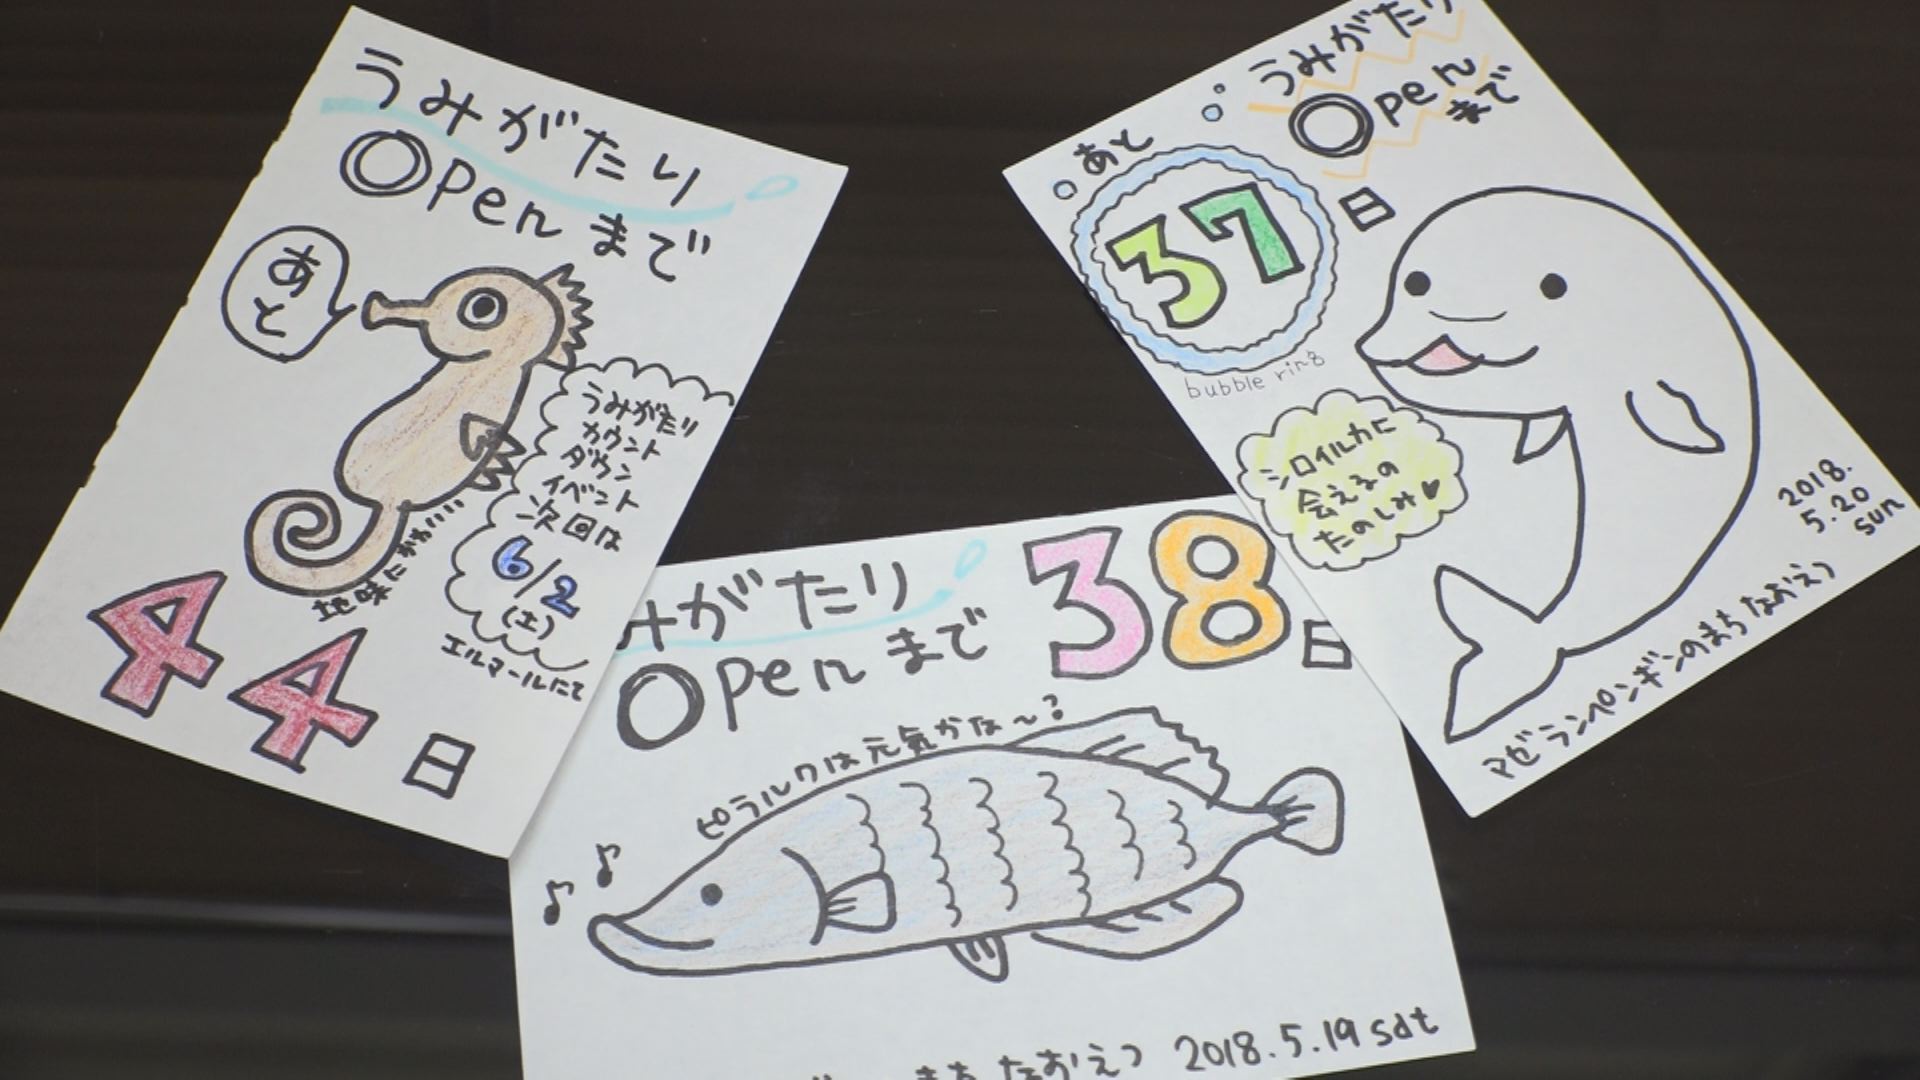 うみがたり
Openまで
あと
うみがたり
カウント
ダウン
イベント
次回は
6/2
(土)
エルマールにて
地味にかわいい
44日
みがたり
Openまで
38日
ピラルクは元気かな～?
まちなおえつ 2018.5.19 sat
うみがたり
Open
まで
あと
37日
bubble ring
シロイルカに
会えるの
たのしみ♥
2018.
5.20
sun
マゼランペンギンのまちなおえつ